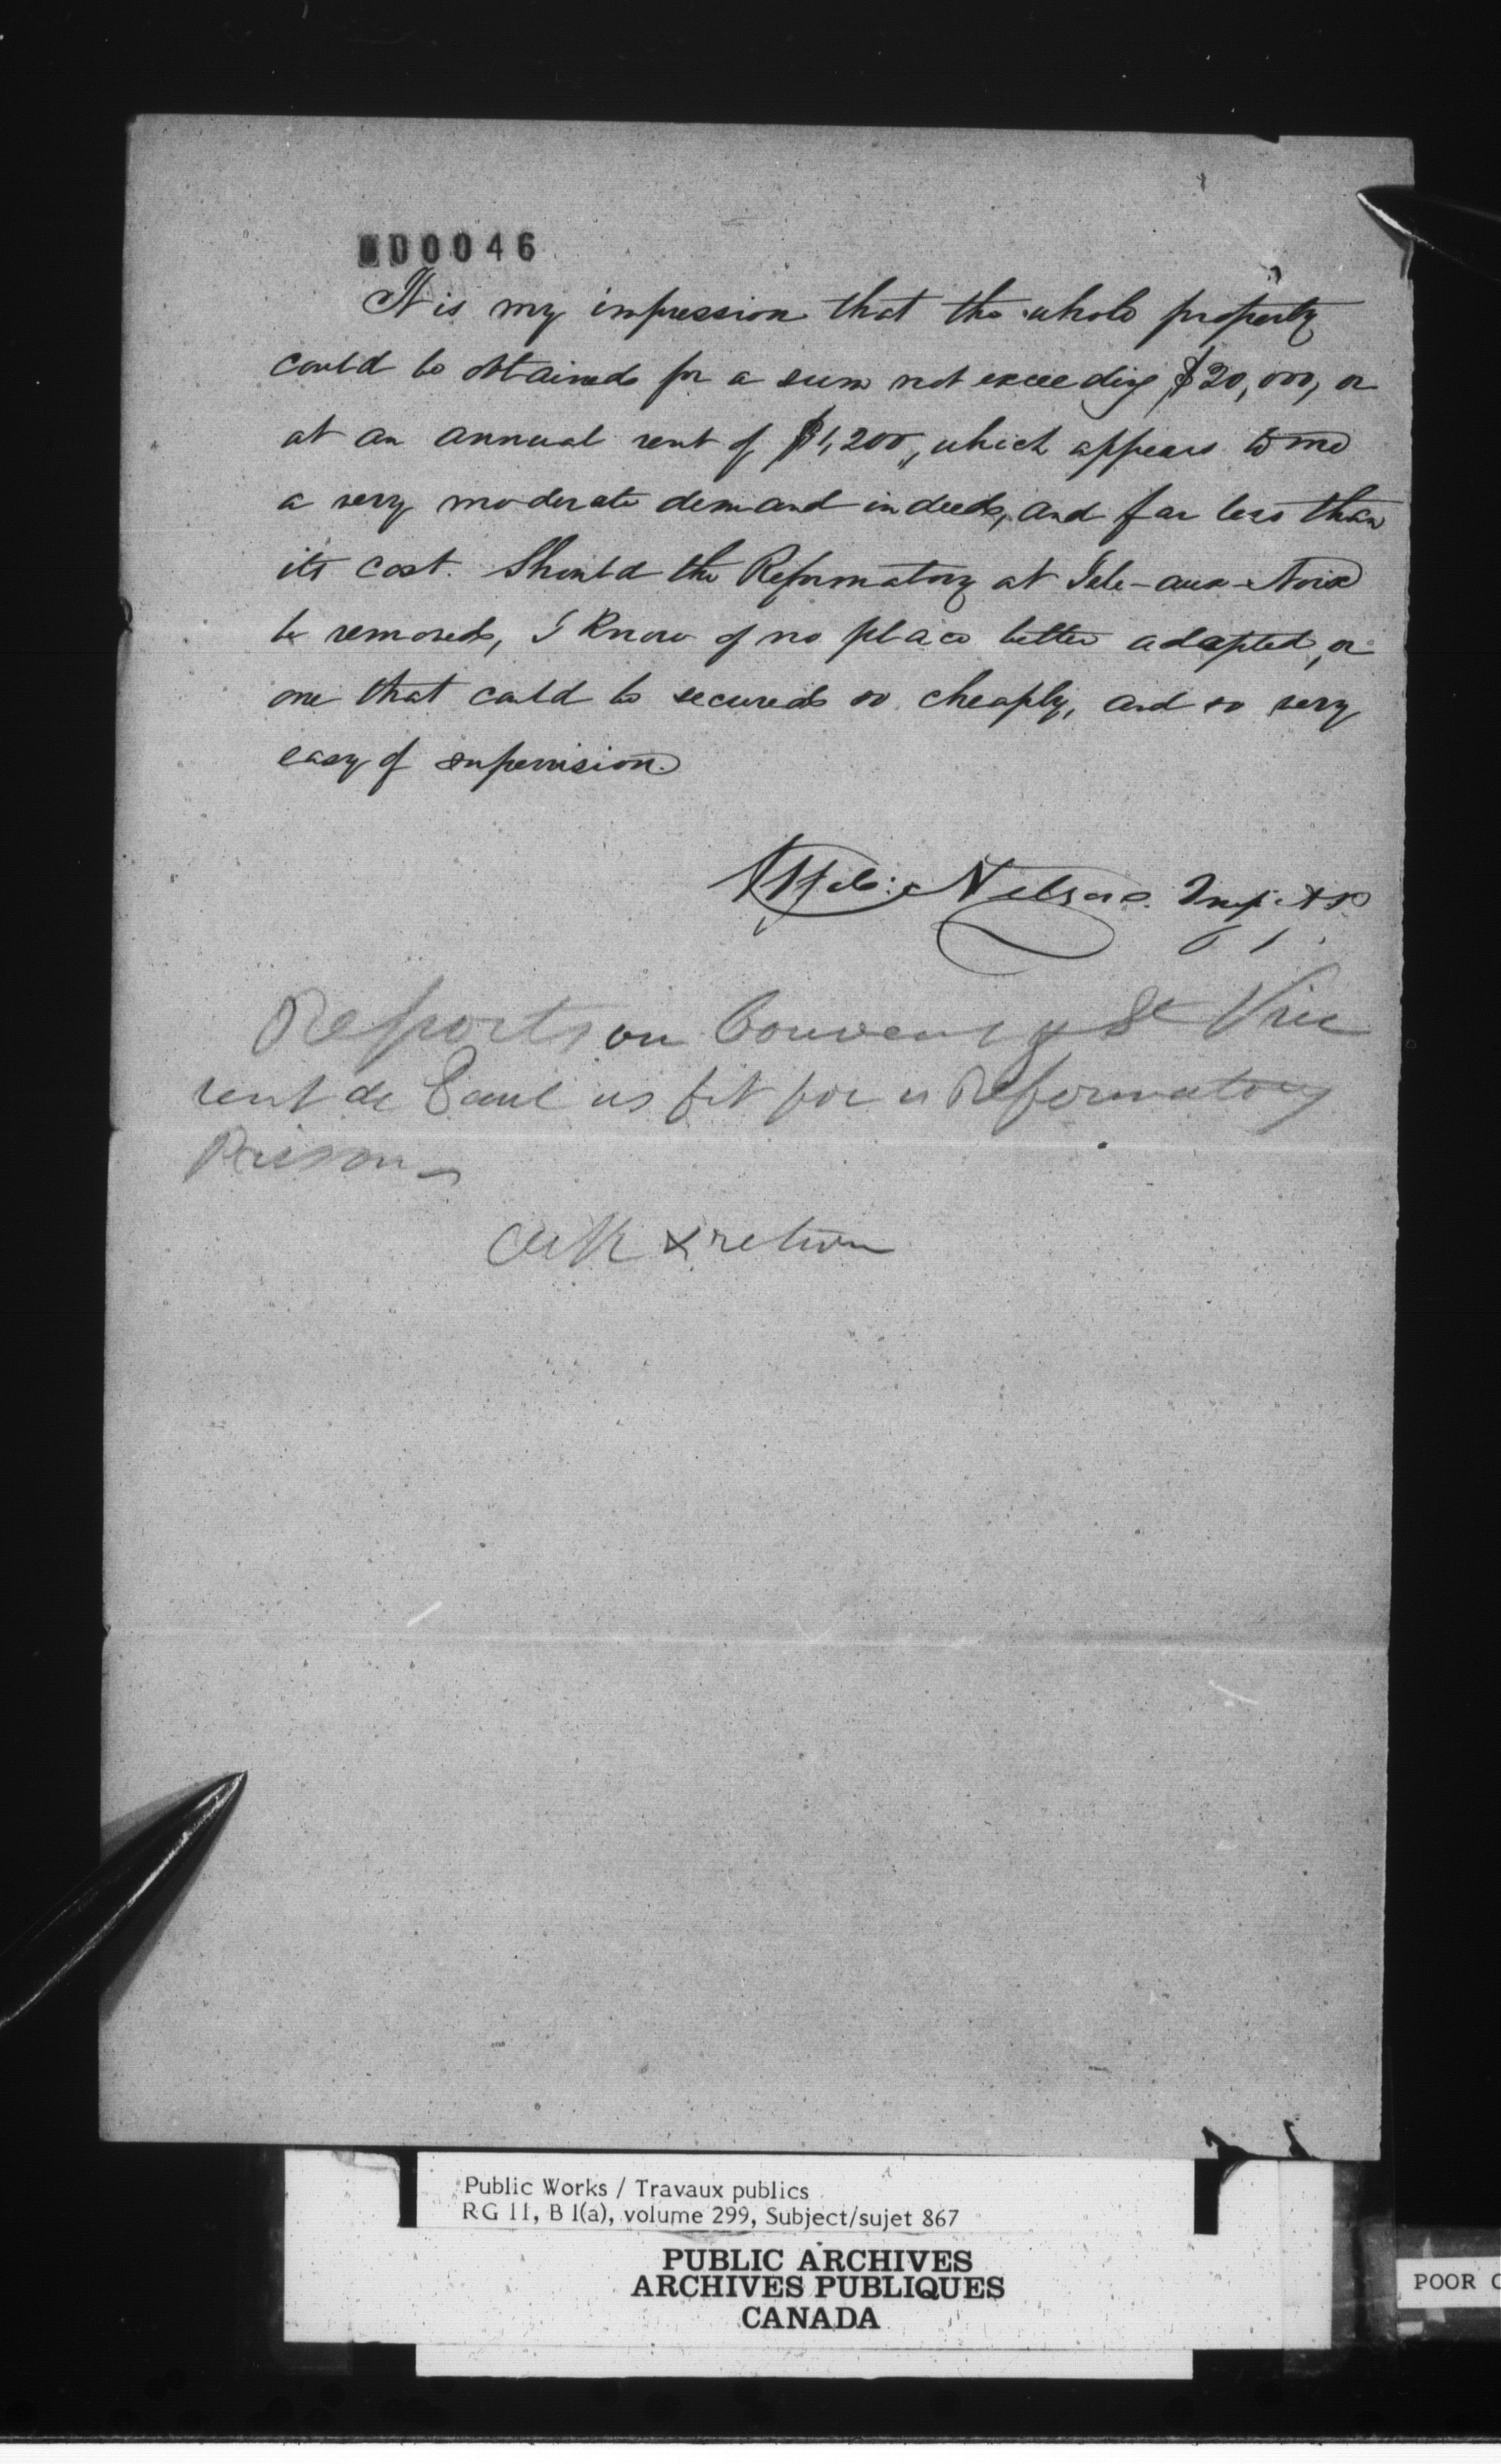 00046
It is my impression that the whole property
could be obtained for a sum not exceeding $20,000, or
at an annual rent of $1,200, which appears to me
a very moderate demand indeed, and far less than
its cost. Should the Reformatory at Isle-aux-Noix
be removed, I know of no place better adapted, or
one that could be secured so cheaply, and so very
easy of supervision.
Wolfred Nelson. Insp.
Reports on Convent of St Vin
cent de Paul as fit for a Reformatory
Prison
& return
Public Works / Travaux publics
RG 11, B 1(a), volume 299, Subject/sujet 867
PUBLIC ARCHIVES
ARCHIVES PUBLIQUES
CANADA
POOR